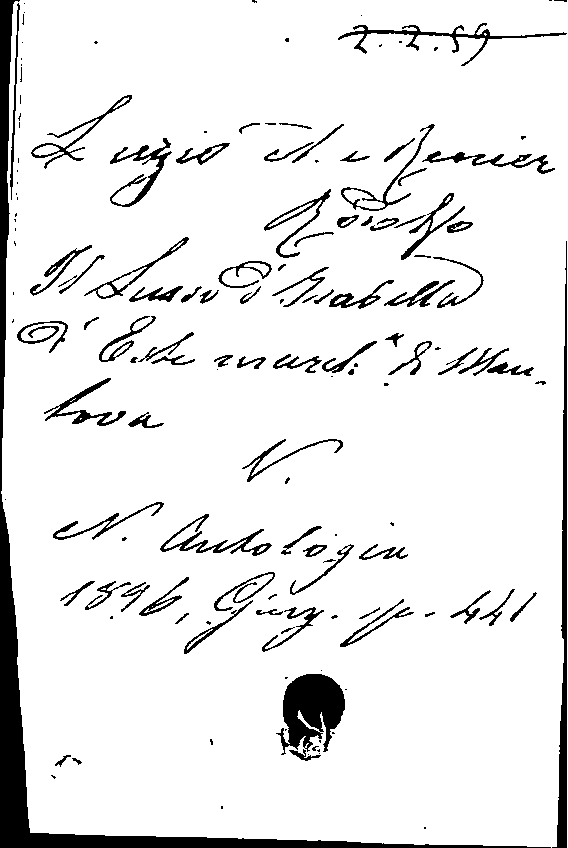 2.2.59
Luzio A. e Renier
Rodolfo
Il Lusso d'Isabella
d'Este march.ª di Man-
tova
V.
N. Antologia
1896, Giug. p. 441